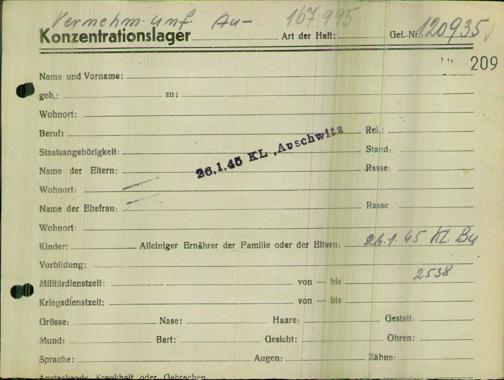 Vernehm. unf Au- 167995
Konzentrationslager Art der Haft: Gef.-Nr. 120935
209
Name und Vorname:
geb.: zu:
Wohnort:
Beruf: Rel.:
Staatsangehörigkeit: Stand:
26.1.45 KL. Auschwitz
Name der Eltern: Rasse:
Wohnort:
Name der Ehefrau: Rasse
Wohnort:
Kinder: Alleiniger Ernährer der Familie oder der Eltern: 26.1.45 Kl. Bu
Vorbildung: 2538
Militärdienstzeit: von — bis
Kriegsdienstzeit: von — bis
Grösse: Nase: Haare: Gestalt:
Mund: Bart: Gesicht: Ohren:
Sprache: Augen: Zähne:
Ansteckende Krankheit oder Gebrechen